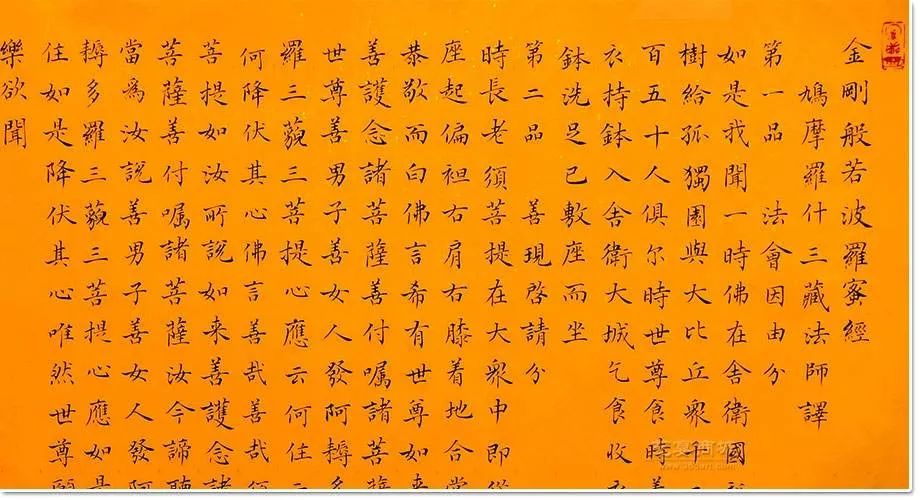 金剛般若波羅蜜經
鳩摩羅什三藏法師譯
第一品 法會因由分
如是我聞一時佛在舍衛國
樹給孤獨園與大比丘衆千
百五十人俱尔時世尊食時
衣持鉢入舍衛大城乞食收
鉢洗足已敷座而坐
第二品 善現啓請分
時長老須菩提在大衆中即從
座起偏袒右肩右膝着地合掌
恭敬而白佛言希有世尊如来
善護念諸菩薩善付嘱諸菩薩
世尊善男子善女人發阿耨多
羅三藐三菩提心應云何住
何降伏其心佛言善哉善哉
菩提如汝所說如来善護念諸
菩薩善付嘱諸菩薩汝今諦聽
當爲汝說善男子善女人發阿
耨多羅三藐三菩提心應如是
住如是降伏其心唯然世尊願
樂欲聞